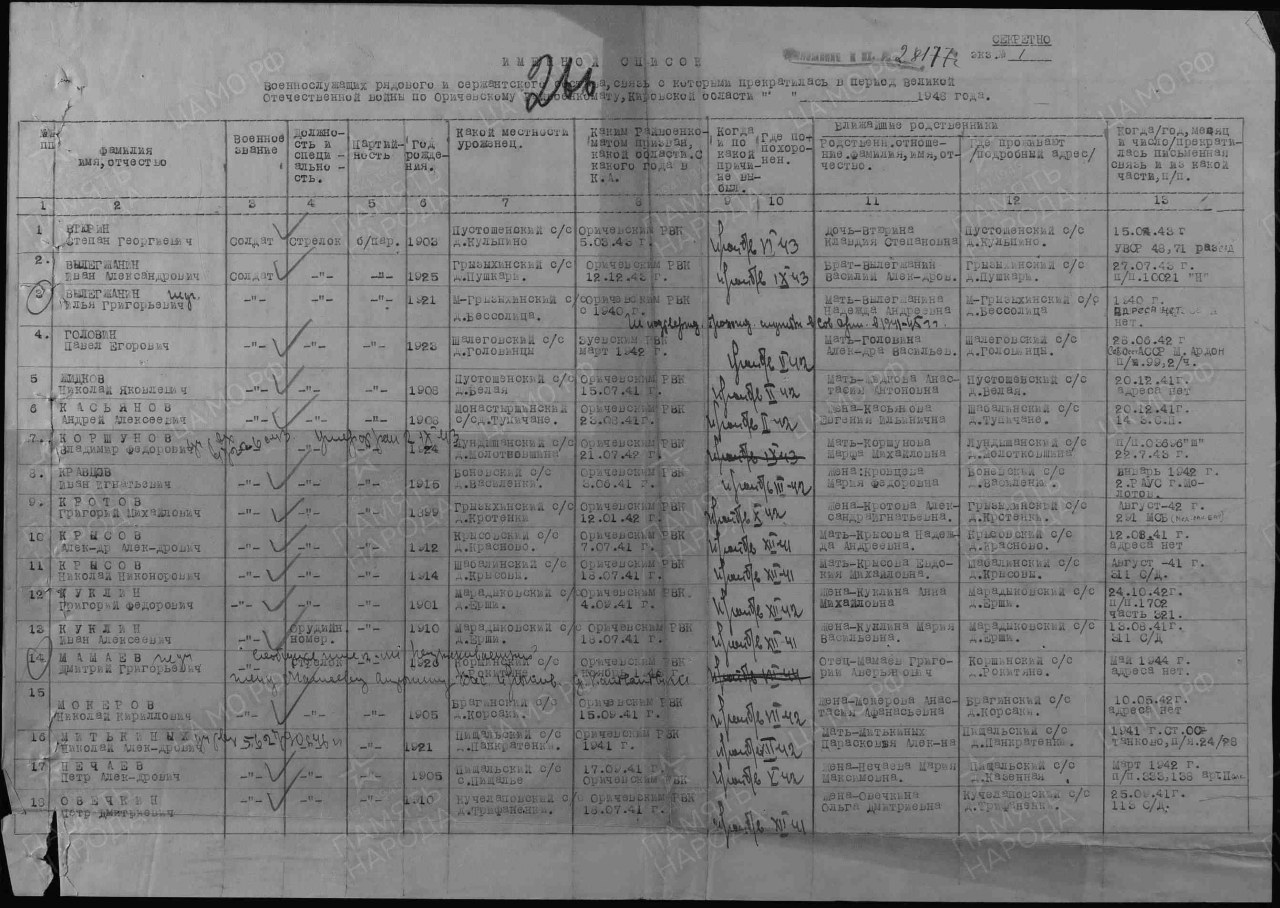 СЕКРЕТНО
экз. № 1
28177с
ИМЕННОЙ СПИСОК
266
Военнослужащих рядового и сержантского состава, связь с которыми прекратилась в период Великой
Отечественной войны по Оричевскому Райвоенкомату, Кировской области " " 1948 года.
№№ пп
фамилия имя, отчество
Военное звание
Должность и специальность.
Партийность
Год рождения.
Какой местности уроженец.
Каким Райвоенкоматом призван, какой области. С какого года в К.А.
Когда и по какой причине выбыл.
Где похоронен.
Ближайшие родственники
Родственн. отношение. фамилия, имя, отчество.
Где проживает /подробный адрес/
Когда/год, месяц и число/прекратилась письменная связь и из какой части, п/п.
1 2 3 4 5 6 7 8 9 10 11 12 13
1 ВТЮРИН Степан Георгиевич Солдат Стрелок б/пар. 1903 Пустошенский с/с д.Кульпино Оричевским РВК 5.03.43 г. VI 43 Дочь-Втюрина Клавдия Степановна Пустошенский с/с д.Кульпино. 15.04.43 г УВСР 48,71 развод
2. ВЫЛЕГЖАНИН Иван Александрович Солдат -"- -"- 1925 Грызыхинский с/с д.Пушкары. Оричевским РВК 12.12.43 г. IX 43 Брат-Вылегжанин Василий Алек-дров. Грызыхинский с/с д.Пушкары. 27.07.43 г. п/п.10021 "Н"
3 ВЫЛЕГЖАНИН Илья Григорьевич -"- -"- -"- 1921 М-Грызыхинский с/с д.Бессолица. Оричевским РВК с 1940 г. Мать-Вылегжанина Надежда Андреевна М-Грызыхинский с/с д.Бессолица 1940 г. адреса нет.
4. ГОЛОВИН Павел Егорович -"- -"- -"- 1923 Шалеговский с/с д.Головинцы Зуевским РВК март 1942 г. II 42 Мать-Головина Алек-дра Васильев. Шалеговский с/с д.Головинцы. 28.06.42 г АССР Ш. Ардон п/я.99,2/ч.
5 ЖИДКОВ Николай Яковлевич -"- -"- -"- 1906 Пустошенский с/с д.Белая Оричевским РВК 15.07.41 г. II 42 Мать-Жидкова Анастасия Антоновна Пустошенский с/с д.Белая. 20.12.41г. адреса нет
6 КАСЬЯНОВ Андрей Алексеевич -"- -"- -"- 1908 Монастырщинский с/с д.Тупичане. Оричевским РВК 23.08.41 г. II 42 Жена-Касьянова Евгения Ильинична Шабалинский с/с д.Тупичане 20.12.41г. 14 З.С.П.
7. КОРШУНОВ Владимир Федорович 1924 Лундышанский с/с д.Молотковщина Оричевским РВК 21.07.42 г. IX 43 Мать-Коршунова Марфа Михайловна Лундышанский с/с д.Молотковщина п/п.03696"ш" 22.7.43 г.
8. КРАВЦОВ Иван Игнатьевич -"- -"- -"- 1915 Боневский с/с д.Василенки. Оричевским РВК 3.06.41 г. III-42 Жена:Кровцова Мария Федоровна Боневский с/с д.Василенки. январь 1942 г. 2.РАУС г.Молотов.
9. КРОТОВ Григорий Михайлович -"- -"- -"- 1899 Грызыхинский с/с д.Кротенки Оричевским РВК 12.01.42 г. X 42 Жена-Кротова Александра Игнатьевна. Грызыхинский с/с д.Кротенки. Август-42 г. 291 МСБ
10 КРЫСОВ Алек-др Алек-дрович -"- -"- -"- 1912 Крысовский с/с д.Красново. Оричевским РВК 7.07.41 г. XII-41 Мать-Крысова Надежда Андреевна. Крысовский с/с д.Красново. 12.08.41 г. адреса нет
11 КРЫСОВ Николай Никонорович -"- -"- -"- 1914 Шабалинский с/с д.Крысовы. Оричевским РВК 18.07.41 г. XII 41 Мать-Крысова Евдокия Михайловна. Шабалинский с/с д.Крысовы. Август -41 г. 311 С/Д.
12 КУКЛИН Григорий Федорович -"- -"- -"- 1901 Марадыковский с/с д.Ерши. Оричевским РВК. 4.09.41 г. XII 42 Жена-Куклина Анна Михайловна Марадыковский с/с д.Ерши. 24.10.42г. п/п.1702 часть 321.
13 КУКЛИН Иван Алексеевич -"- Орудийн. номер. -"- 1910 Марадыковский с/с д.Ерши. Оричевским РВК 18.07.41 г. XII 41 Жена-Куклина Мария Васильевна. Марадыковский с/с д.Ерши. 13.08.41г. 311 С/Д
14 МАМАЕВ Дмитрий Григорьевич -"- стрелок -"- 1926 Коршинский с/с д.Рокитяне. Оричевским РВК Отец-Мамаев Григорий Аверьянович Коршинский с/с д.Рокитяне. Май 1944 г. адреса нет.
15 МОКЕРОВ Николай Кириллович -"- -"- -"- 1905 Брагинский с/с д.Корсаки. Оричевским РВК 15.09.41 г. VII 42 Жена-Мокерова Анастасия Афанасьевна Брагинский с/с д.Корсаки. 10.05.42г. адреса нет
16 МИТЬКИНЫХ Николай Алек-дрович -"- 1921 Пищальский с/с д.Панкратенки. Оричевским РВК 1941 г. II 42 Мать-Митькиных Парасковья Алек-на Пищальский с/с д.Панкратенки. 1941 г.
17 НЕЧАЕВ Петр Алек-дрович -"- -"- -"- 1905 Пищальский с/с с.Пищалье 17.09.41 г. Оричевским РВК V 42 Жена-Нечаева Мария Максимовна. Пищальский с/с д.Казенная Март 1942 г.
18 ОВЕЧКИН Петр Дмитриевич -"- -"- -"- 1910 Кучелаповский с/с д.Трифаненки. Оричевским РВК 18.07.41 г. XII 41 Жена-Овечкина Ольга Дмитриевна Кучелаповский с/с д.Трифаненки. 25.09.41г. 113 С/Д.
ПАМЯТЬ НАРОДА
ЦАМО.РФ